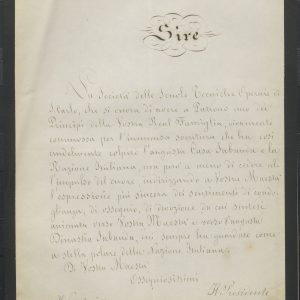 Sire
La Società delle Scuole Tecniche Operaie di
S. Carlo, che si onora di avere a Patrono uno dei
Principi della Vostra Real Famiglia, vivamente
commossa per l'immensa sventura che ha così
crudelmente colpito l'augusta Casa Sabauda e la
Nazione Italiana non può a meno di cedere al
l'impulso del cuore indirizzando a Vostra Maestà
l'espressione più sincera dei sentimenti di condo
glianza, di ossequio, di devozione da cui sentesi
animata verso Vostra Maestà e verso l'augusta
Dinastia Sabauda, cui sempre ha guardato come
a stella polare della Nazione Italiana.
Di Vostra Maestà
Ossequiosissimi
Il Presidente
Il